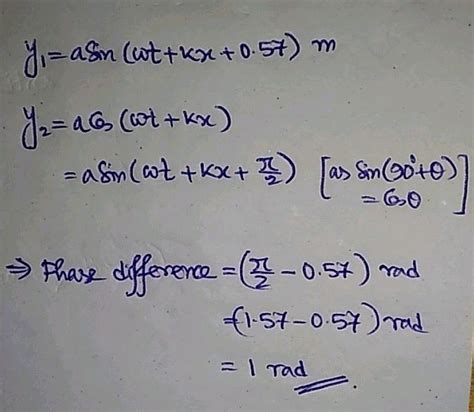 y₁ = a Sin (ωt + kx + 0.57) m
y₂ = a Cos (ωt + kx)
= a Sin (ωt + kx + π/2) [as Sin(90° + θ)
= Cos θ]
⇒ Phase difference = (π/2 - 0.57) rad
= (1.57 - 0.57) rad
= 1 rad